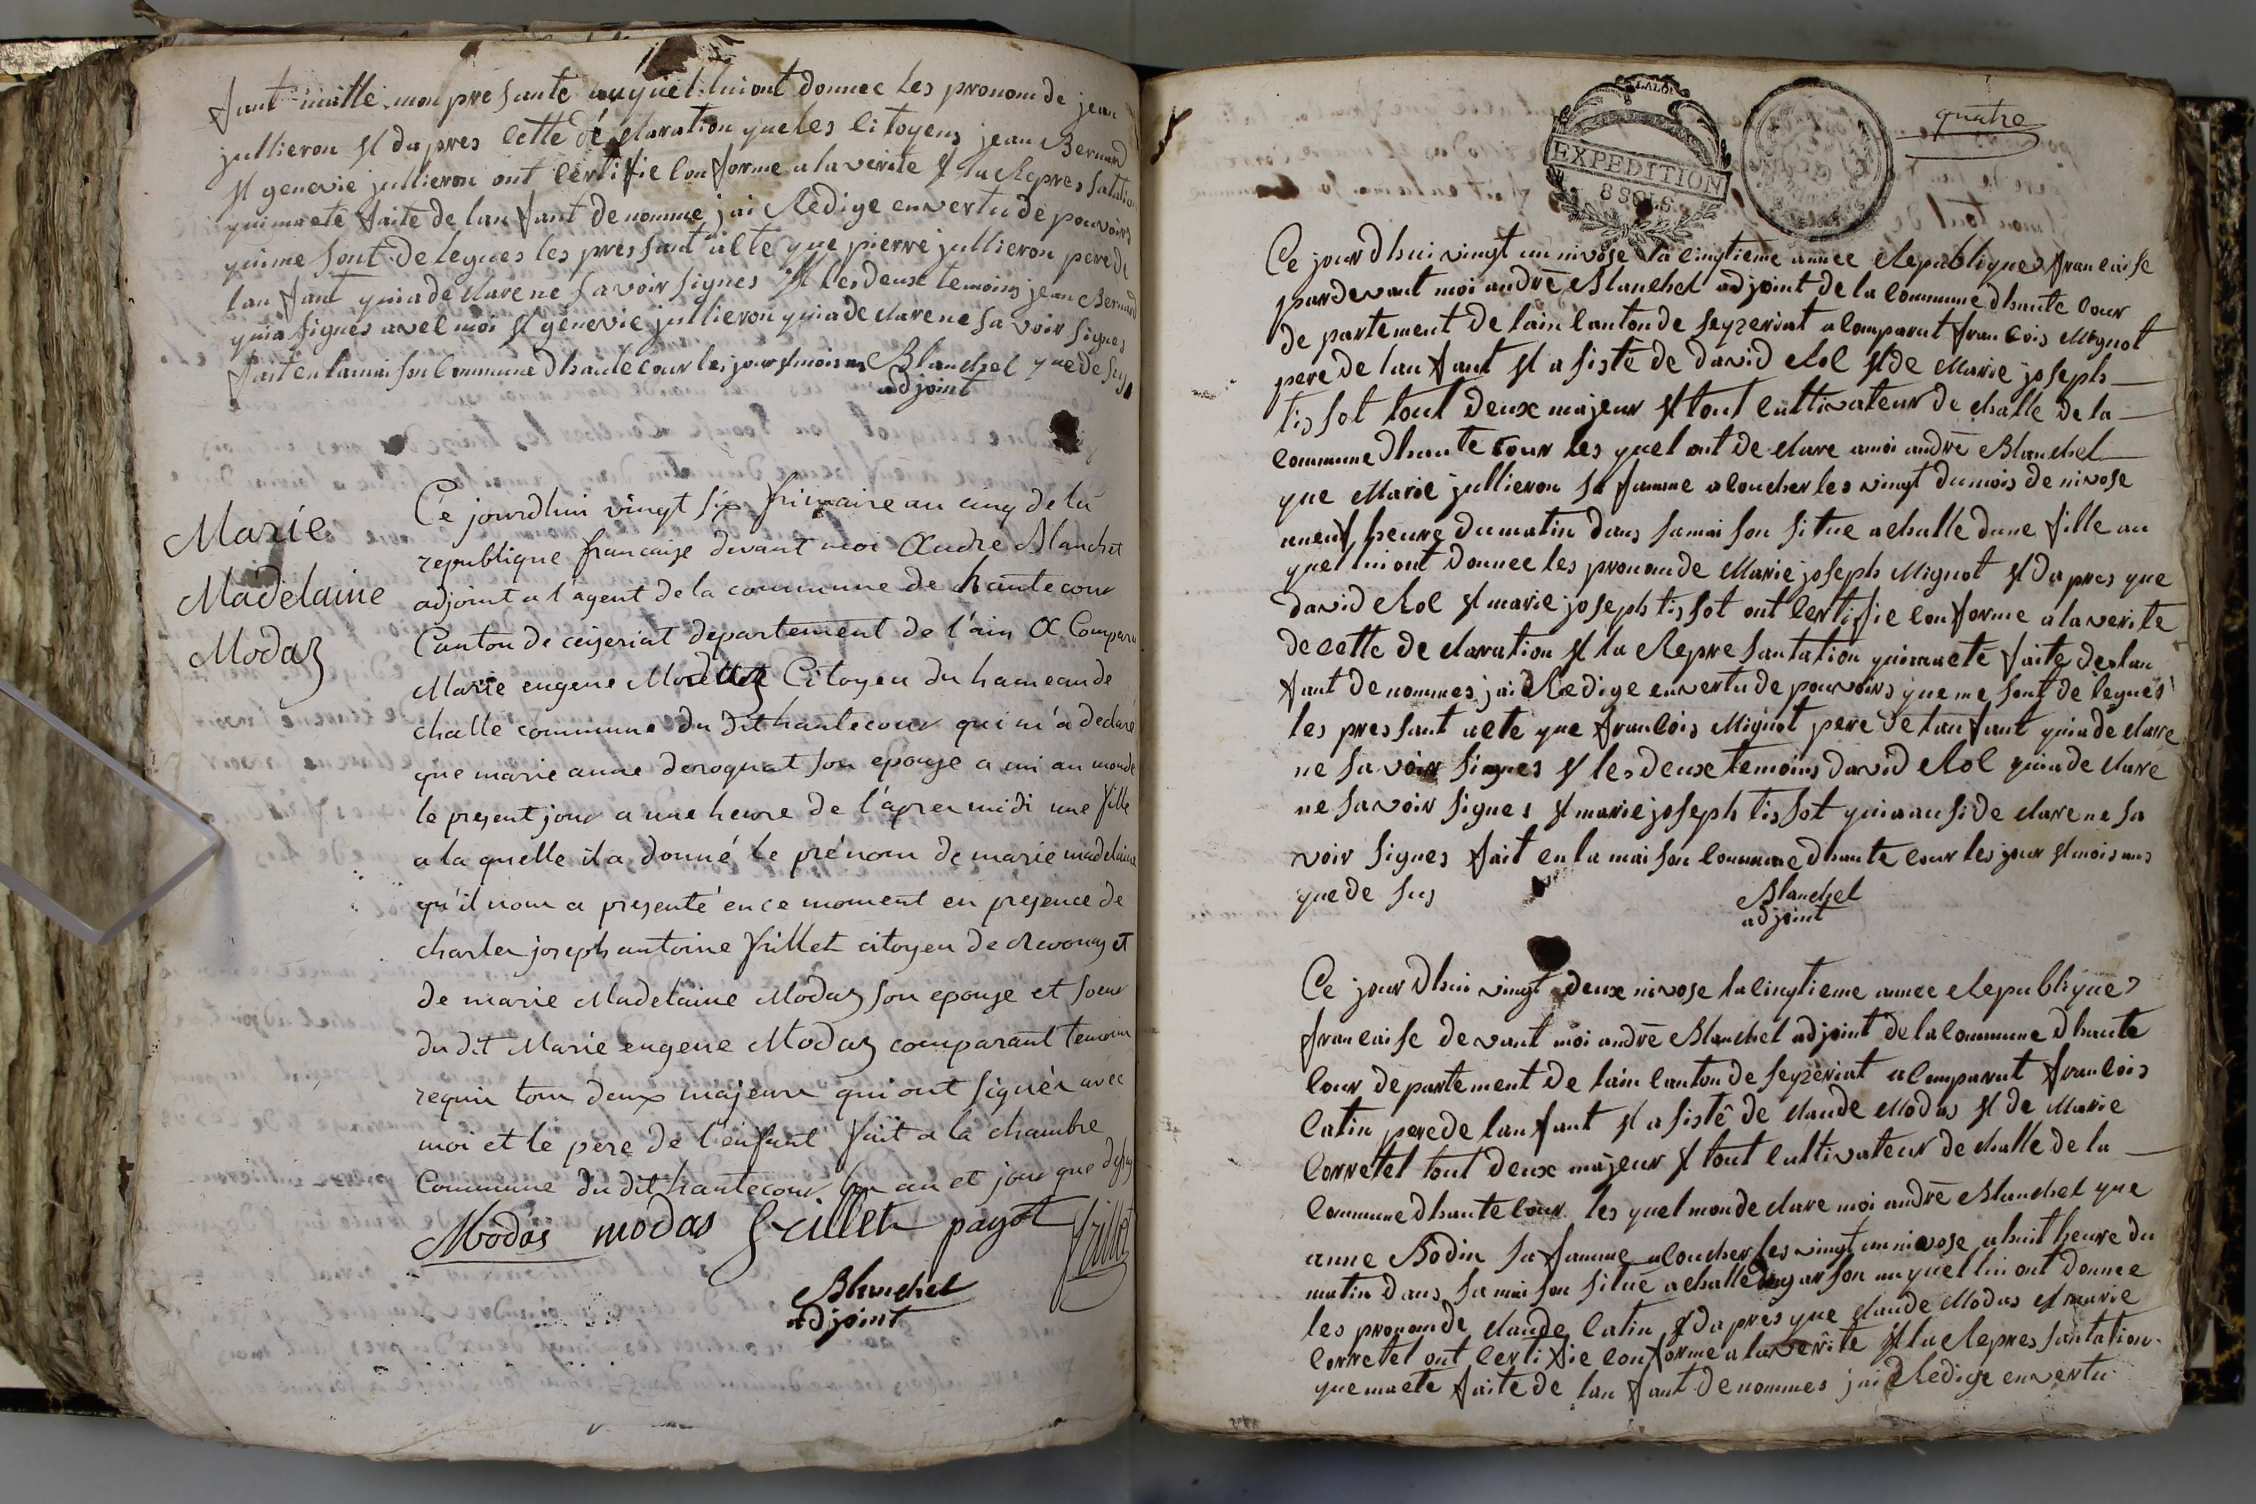 fant malle mon presante auquel lui ont donnee les pronom de jean
jullieron et dapres cette déclaration que les citoyens jean Bernard
et genevie jullieron ont certifie conforme a la verite et la Represatation
qui ma ete faite de lan fant denomme jai Redige en vertu de pouvoirs
qui me sont delegues les pressant acte que pierre jullieron pere de
lan fant qui a declare ne savoir signes et les deux temoins jean Bernard
qui a signes avec moi et genevie jullieron qui a declare ne savoir signes
fait en la maison Commune dhaute cour les jour et mois an que de sus
Blanchet
adjoint
Marie
Madelaine
Modaz
Ce jourdhui vingt six frimaire an cinq de la
republique française devant moi André Blanchet
adjoint a l'agent de la commune de hautecour
Canton de ceiseriat departement de l'ain A Comparu
Marie eugene Citoyen du hameau de
challe commune du dit hautecour qui m'a declaré
que marie anne deroquat son epouse a mi au monde
le present jour a une heure de l'apres midi une fille
a la quelle il a donné le prénom de marie madelaine
qu'il nous a presenté en ce moment en presence de
charles joseph antoine frillet citoyen de Revonas et
de marie Madelaine Modaz son epouse et soeur
du dit Marie eugene Modaz comparant temoins
requis tous deux majeurs qui ont signés avec
moi et le pere de l'enfant fait a la chambre
Commune du dit hautecour les an et jour que desus
Modas modas frillet payot frillet
Blanchet
adjoint
LA LOI
EXPEDITION
8 SOLS
quatre
Ce jour dhui vingt un nivose la cinqtieme annee Republique francaise
pardevant moi andrē Blanchet adjoint de la Commune dhaute Cour
departement de lain canton de seyzeriat a comparut francois Mignot
pere de lan fant et asisté de david Rol et de Marie joseph
tissot tout deux majeur et tout cultivateur de challe de la
commune dhaute cour les quel ont declare a moi andrē Blanchet
que Marie jullieron sa famme a coucher les vingt du mois de nivose
a neuf heure du matin dans sa maison situe a challe dune fille au
quel lui ont donnee les pronon de Marie joseph Mignot et dapres que
david Rol et marie joseph tissot ont certifie conforme a la verite
de cette declaration et la Represantation qui ma eté faite de lan
fant denommes jai Redige en vertu de pouvoirs que me sont delegues
les pressant acte que francois Mignot pere de lan fant qui a declare
ne savoir signes et les deux temoins david Rol qui a declare
ne savoir signes et marie joseph tissot qui a ausi declare ne sa
voir signes fait en la maison Commune dhaute cour les jour et mois ans
que de sus
Blanchet
adjoint
Ce jour dhui vingt deux nivose la cinqtieme annee Republique
francaise devant moi andrē Blanchet adjoint de la Commune dhaute
Cour departement de lain canton de seyzeriat a comparut francois
Catin pere de lan fant et asisté de claude Modas et de Marie
Corretel tout deux majeur et tout cultivateur de challe de la
Commune dhaute Cour les quel mon declare moi andrē Blanchet que
anne Bodin sa famme a coucher les vingt un nivose a huit heure du
matin dans sa maison situé a challe dun garson au quel lui ont donnee
les pronon de claude Catin et dapres que claude Modas et marie
Corretel ont certifie conforme a la verite et la Represantation
que ma ete faite de lan fant denommes jai Redige en vertu